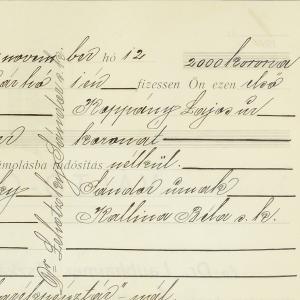 novem ber hó 12 2000 korona
ár hó 1 én fizessen Ön ezen első
Koppány Lajos úr
koronát
ámolásba tudósítás nélkül.
ky Sándor úrnak
Kallina Béla s. k.
Dr. Lehotzky Sándor s. k.